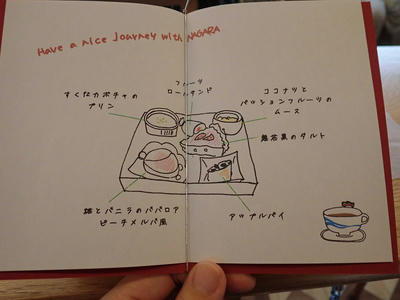 Have a nice Journey with NAGARA
すくなカボチャの
プリン
フルーツ
ロールサンド
ココナツと
パッションフルーツの
ムース
無花果のタルト
桃とバニラのババロア
ピーチメルバ風
アップルパイ